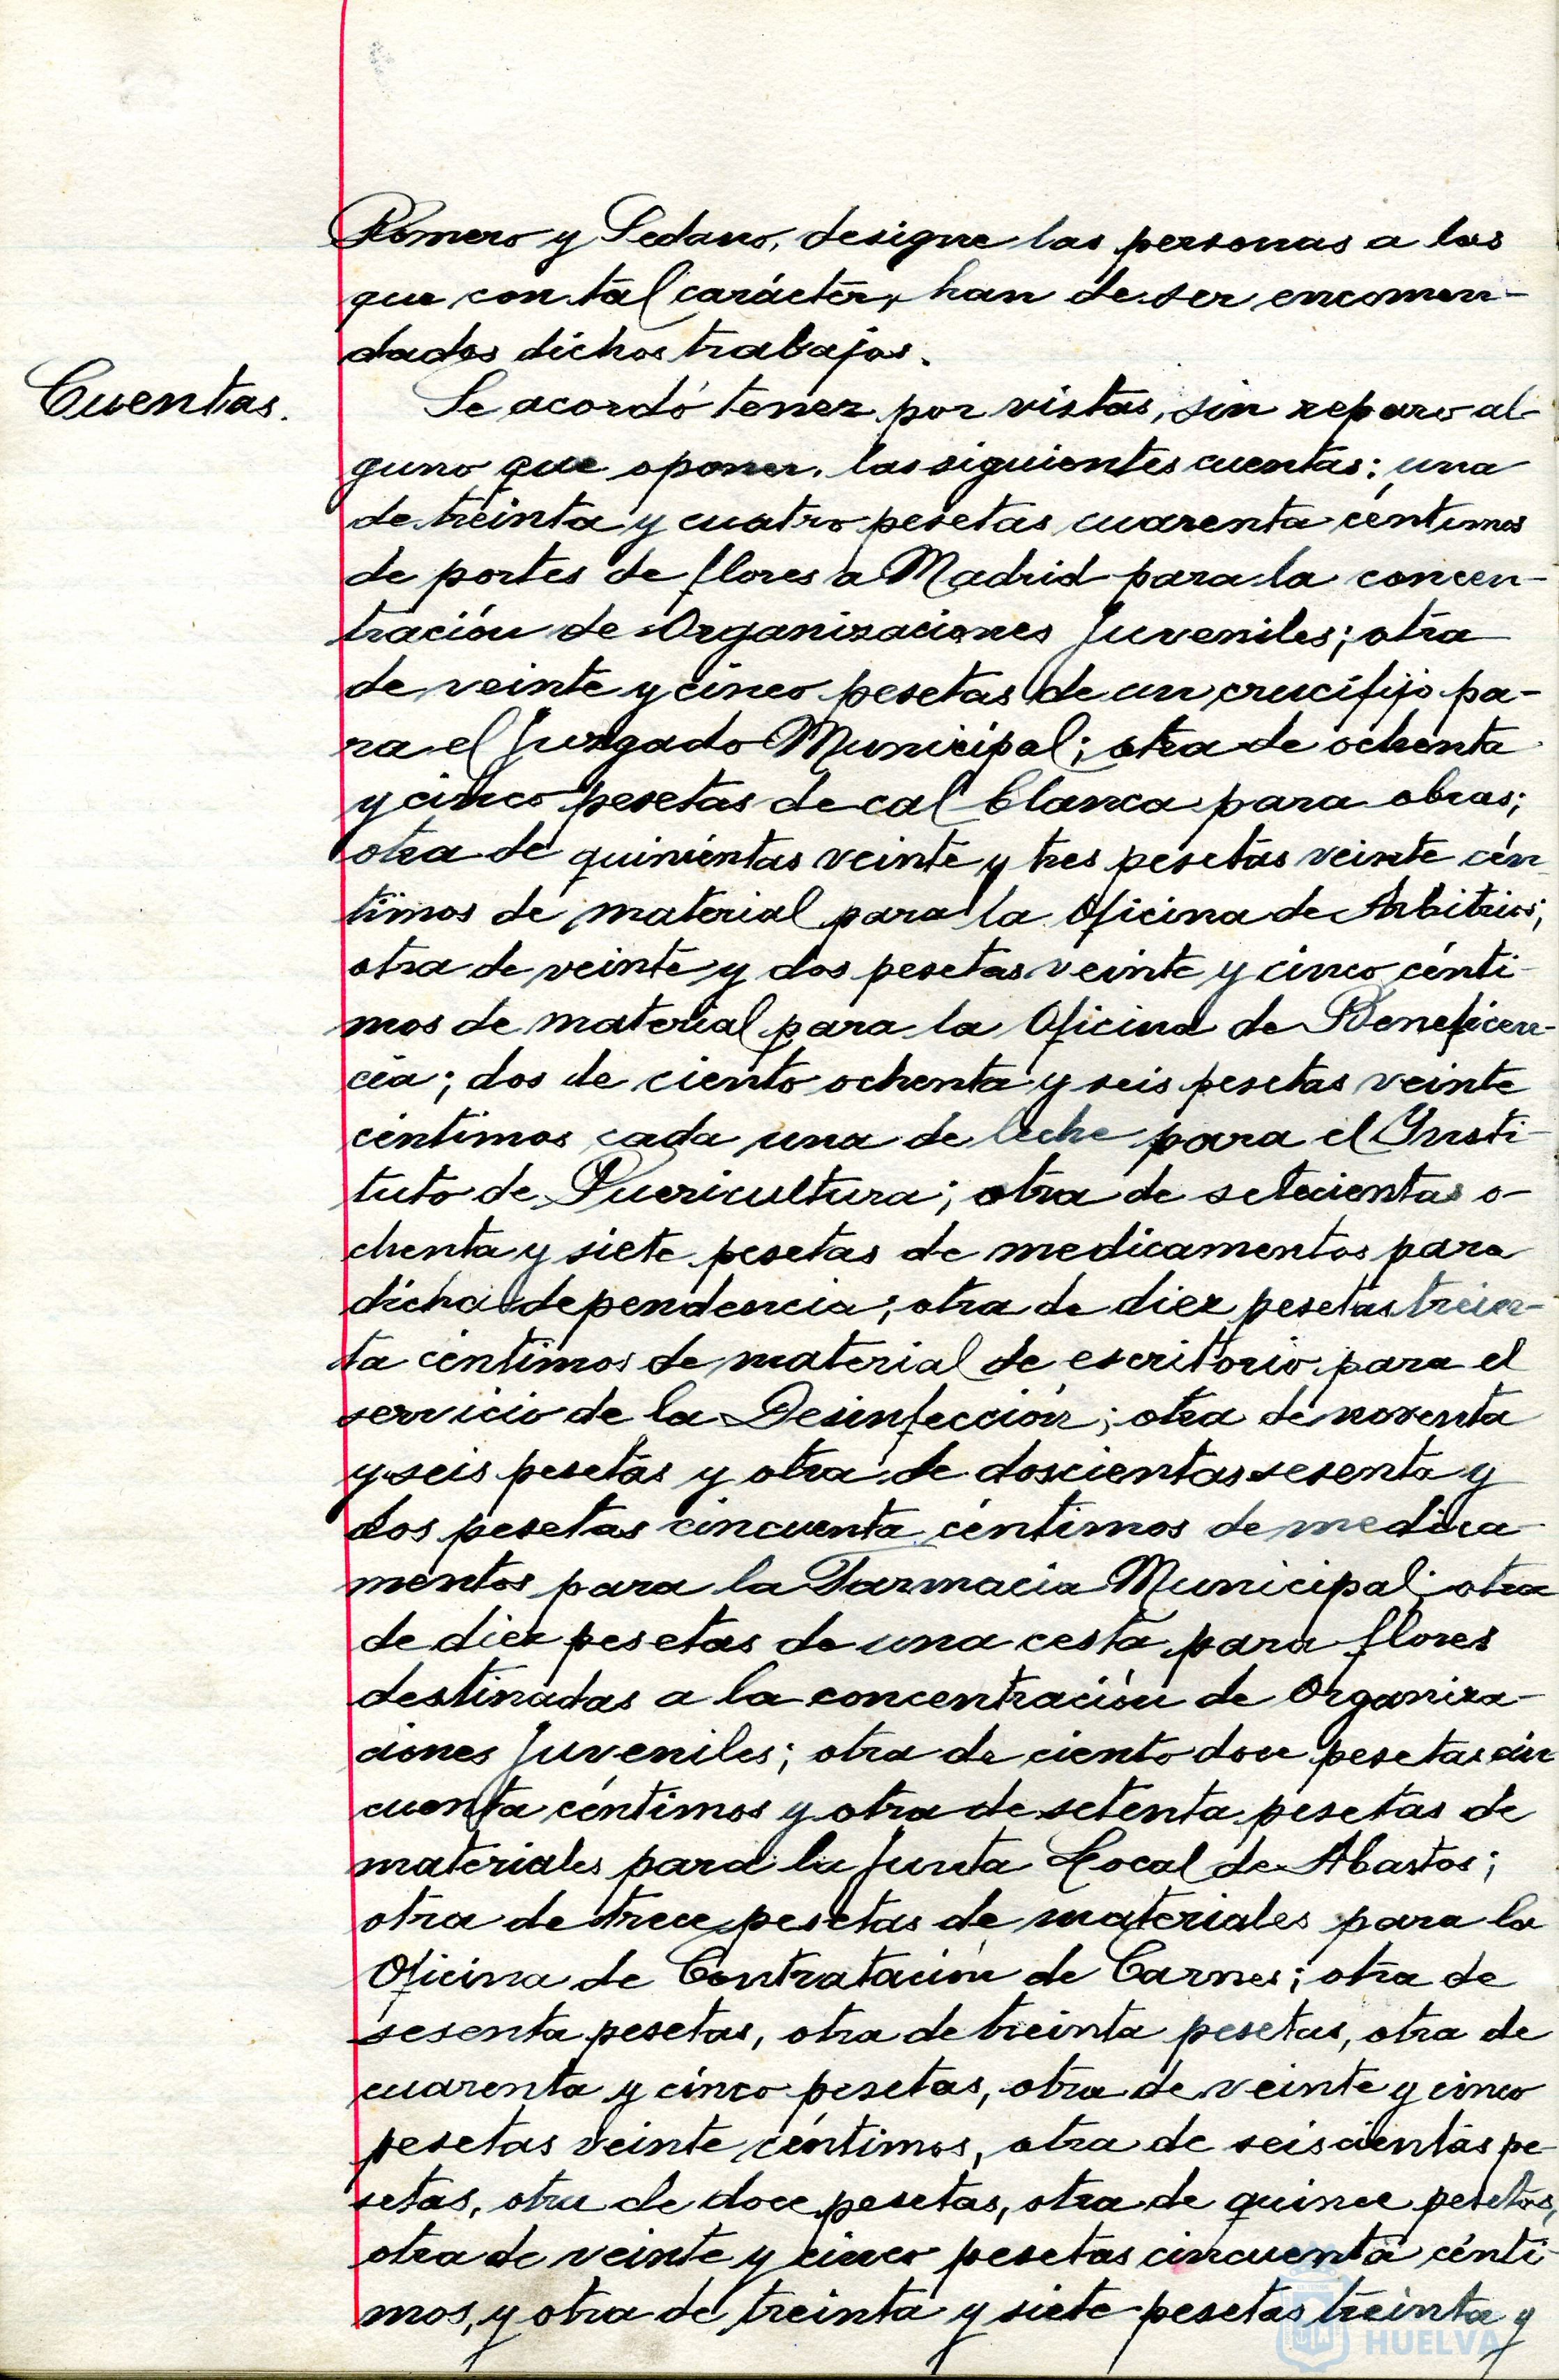 Romero y Sedano, designe las personas a las
que con tal carácter, han de ser encomen-
dados dichos trabajos.
Cuentas.
Se acordó tener por vistas, sin reparo al-
guno que oponer, las siguientes cuentas: una
de treinta y cuatro pesetas cuarenta céntimos
de portes de flores a Madrid para la concen-
tración de Organizaciones Juveniles; otra
de veinte y cinco pesetas de un crucifijo pa-
ra el Juzgado Municipal; otra de ochenta
y cinco pesetas de cal blanca para obras;
otra de quinientas veinte y tres pesetas veinte cén
timos de material para la Oficina de Arbitrios;
otra de veinte y dos pesetas veinte y cinco cénti-
mos de material para la Oficina de Beneficen-
cia; dos de ciento ochenta y seis pesetas veinte
céntimos cada una de leche para el Insti-
tuto de Puericultura; otra de setecientas o-
chenta y siete pesetas de medicamentos para
dicha dependencia; otra de diez pesetas trein-
ta céntimos de material de escritorio para el
servicio de la Desinfección; otra de noventa
y seis pesetas y otra de doscientas sesenta y
dos pesetas cincuenta céntimos de medica-
mentos para la Farmacia Municipal; otra
de diez pesetas de una cesta para flores
destinadas a la concentración de Organiza-
ciones Juveniles; otra de ciento doce pesetas cin
cuenta céntimos y otra de setenta pesetas de
materiales para la Junta Local de Abastos;
otra de trece pesetas de materiales para la
Oficina de Contratación de Carnes; otra de
sesenta pesetas, otra de treinta pesetas, otra de
cuarenta y cinco pesetas, otra de veinte y cinco
pesetas veinte céntimos, otra de seiscientas pe-
setas, otra de doce pesetas, otra de quince pesetas,
otra de veinte y cinco pesetas cincuenta cénti-
mos, y otra de treinta y siete pesetas treinta y
HUELVA